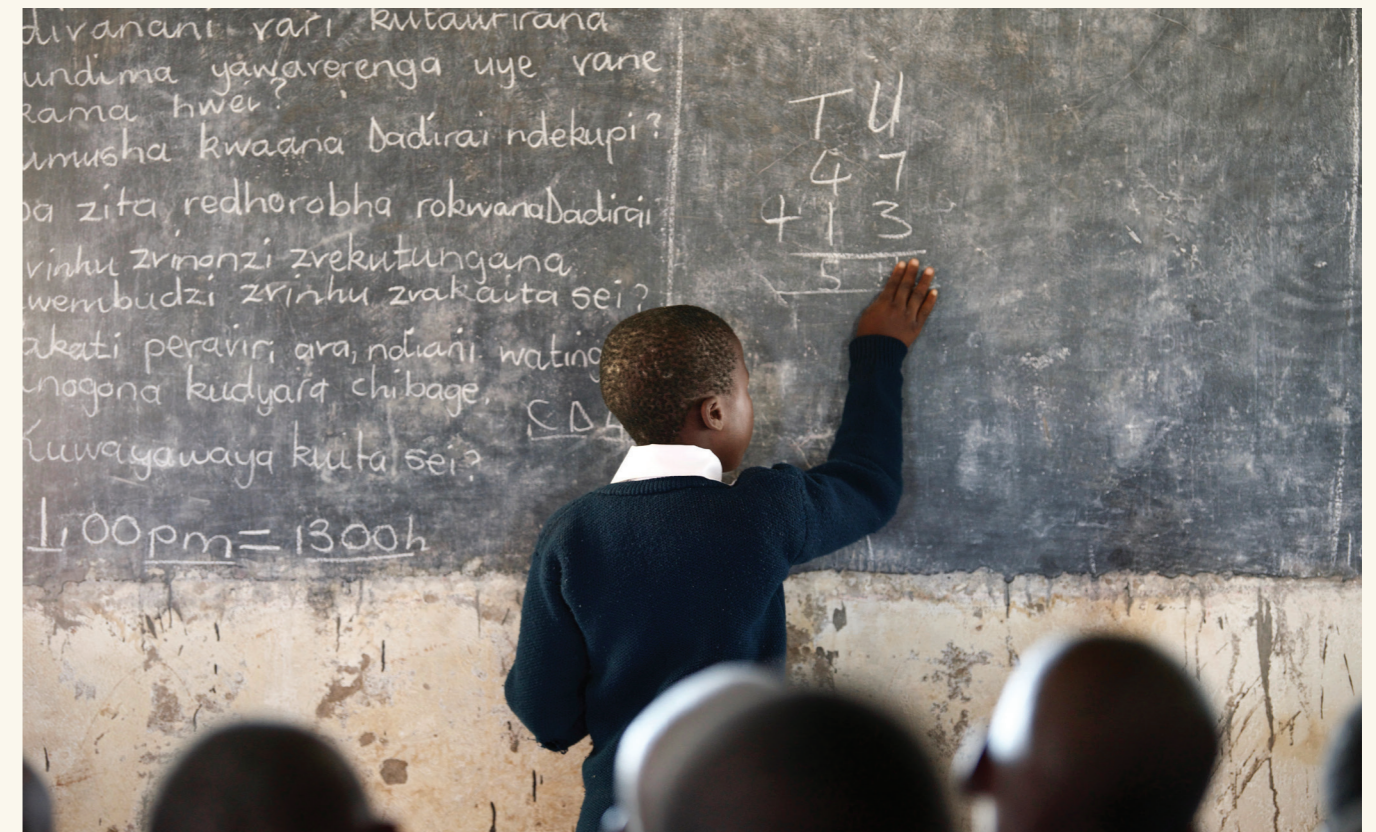 divanani vari kutaurirana
undima yawaverenga uye vane
kama hwei?
umusha kwaana Dadirai ndekupi?
pa zita redhorobha rokwanaDadirai
vinhu zvinonzi zvekutungana
wembudzi zvinhu zvakaita sei?
akati peravir, ara, ndiani
inogona kudyara chibage.
Kuwayawaya kuita sei?
1,00pm = 1300h
T U
4 7
+ 1 3
5